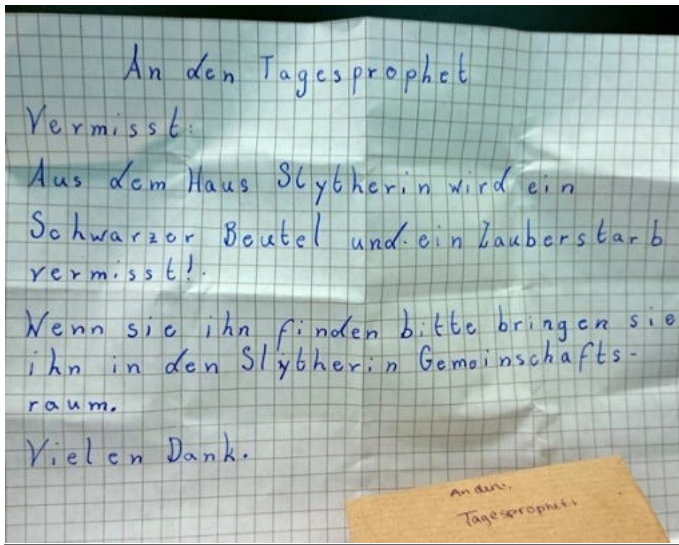 An den Tagesprophet
Vermisst:
Aus dem Haus Slytherin wird ein
Schwarzer Beutel und ein Zauberstarb
vermisst!.
Wenn sie ihn finden bitte bringen sie
ihn in den Slytherin Gemeinschafts-
raum.
Vielen Dank.
An den:
Tagesprophet